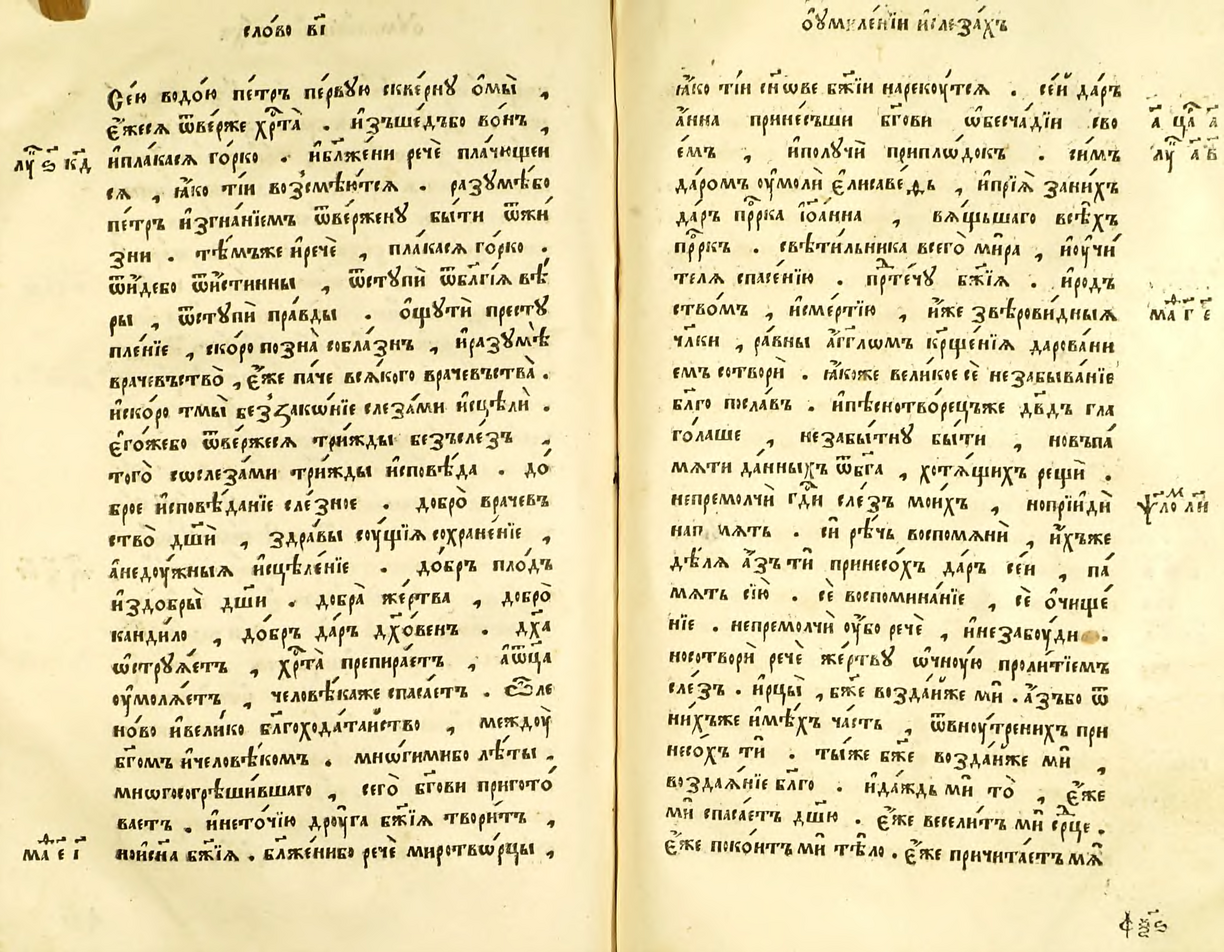 сло́во в҃і
Се́ю водо́ю пе́тръ пе́рвꙋю скве́рнꙋ ѡ҆мы̀ ,
є҆́жесѧ ѿве́рже хрⷭ҇та̀ . и҆зъше́дъбо во́нъ ,
и҆пла́касѧ го́рко . и҆бл҃же́ни речѐ пла́чющеи
сѧ , ꙗ҆́ко ті́и возсмѣю́тсѧ . разꙋмѣ́бо
пе́тръ и҆згна́нїемъ ѿве́рженꙋ бы́ти ѿжи́
зни . тѣ́мъже и҆речѐ , пла́касѧ го́рко .
ѿи́дебо ѿи́стинны , ѿстꙋпѝ ѿбл҃гі́ѧ вѣ́
ры , ѿстꙋпѝ пра́вды . ѡ҆щꙋтѝ престꙋ
пле́нїе , ско́ро позна̀ собла́знъ , и҆разꙋмѣ̀
врачевъство̀ , є҆́же па́че всѧ́кого врачевъства̀ .
и҆ско́ро тмы̀ беззако́нїе слеза́ми и҆сцѣлѝ .
є҆го́жебо ѿве́ржесѧ три́жды безъсле́зъ ,
того̀ сослеза́ми три́жды и҆сповѣ́да . до́
брое и҆сповѣ́данїе сле́зное . добро̀ врачевъ
ство̀ дш҃и , здра́вы соу́щїѧ сохране́ніе ,
а҆недоу́жныѧ и҆сцѣле́нїе . до́бръ пло́дъ
и҆здобры̀ дш҃и . добра̀ же́ртва , добро̀
канди́ло , до́бръ да́ръ дх҃о́венъ . дх҃а
ѡ҆стрꙋѧ́етъ , хрⷭ҇та̀ препира́етъ , а҆ѿц҃а
оу҆молѧ́етъ , человѣ́каже спаса́етъ . сѿле
но́во и҆вели́ко бл҃гохода́таиство , междоу̀
бг҃омъ и҆человѣ́комъ . мно́гимибо лѣ́ты ,
мно́госогрѣши́вшаго , сего̀ бг҃ови пригото́
ваетъ . и҆нето́чїю дроу́га бж҃їѧ твори́тъ ,
нои҆сн҃а бж҃їѧ . бл҃же́нибо речѐ миротво́рцы ,
лꙋ҃ ѕ҃ к҃д
маⷴ҇ є҃ і҃
оу҆миле́нїи и҆слеза́хъ
ꙗ҆́ко ті́и сн҃ове бж҃їи нарекоу́тсѧ . се́й да́ръ
а҆́нна прине́съши бг҃ови ѡ҆бесча́дїи сво
е́мъ , и҆полꙋчѝ припло́докъ . си́мъ
да́ромъ оу҆молѝ є҆лисаве́дь , и҆прїѧ̀ зани́хъ
да́ръ прⷪ҇рка і҆ѡа́нна , вѧ́щьшаго всѣ́хъ
прⷪ҇ркъ . свѣти́льника всего̀ ми́ра , и҆оу҆чи́
телѧ спасе́нїю . прⷣте́чꙋ бж҃їѧ . и҆ро́дъ
ство́мъ , и҆сме́ртїю , и҆́же звѣрови́дныѧ
чл҃ки , ра́вны а҆́гг҃ломъ крⷳ҇ще́нїѧ дарова́ни
емъ сотворѝ . ꙗ҆́коже вели́кое сѐ незабыва́нїе
бл҃го посла́въ . и҆пѣснотво́рецъже дв҃дъ гла
го́лаше , незабы́тнꙋ бы́ти , новъпа́
мѧти да́нныхъ ѿбг҃а , хотѧ́щихъ рещѝ .
непремолчѝ гдⷭ҇и сле́зъ мои́хъ , нопрїидѝ
нап мѧть . сѝ рѣ́чь воспомѧнѝ , и҆́хъже
дѣ́лѧ а҆́зъ ти принесо́хъ да́ръ се́и , па́
мѧть сїю̀ . сѐ воспомина́нїе , сѐ ѡ҆чище́
нїе . непремолчѝ оу҆́бо речѐ , и҆незабоу́ди .
носотворѝ речѐ же́ртвꙋ ѡ҆чноу́ю проли́тїемъ
сле́зъ . и҆рцы̀ , бж҃е возда́йже мѝ . а҆́зъбо ѿ
ни́хъже и҆мѣ́хъ ча́сть , ѿвноу́тренихъ при
несо́хъ тѝ . ты́же бж҃е возда́йже мѝ ,
воздаѧ́нїе бл҃го . и҆да́ждь мѝ то̀ , є҆́же
мѝ спаса́етъ дш҃ю . є҆́же весели́тъ мѝ срⷣце .
є҆́же поко́итъ мѝ тѣ́ло . є҆́же причита́етъ мѧ̀
а҃ црⷭ҇ а҃
лꙋ҃ а҃ в҃
маⷴ҇ г҃ є҃
ѱаⷧ҇ л҃и